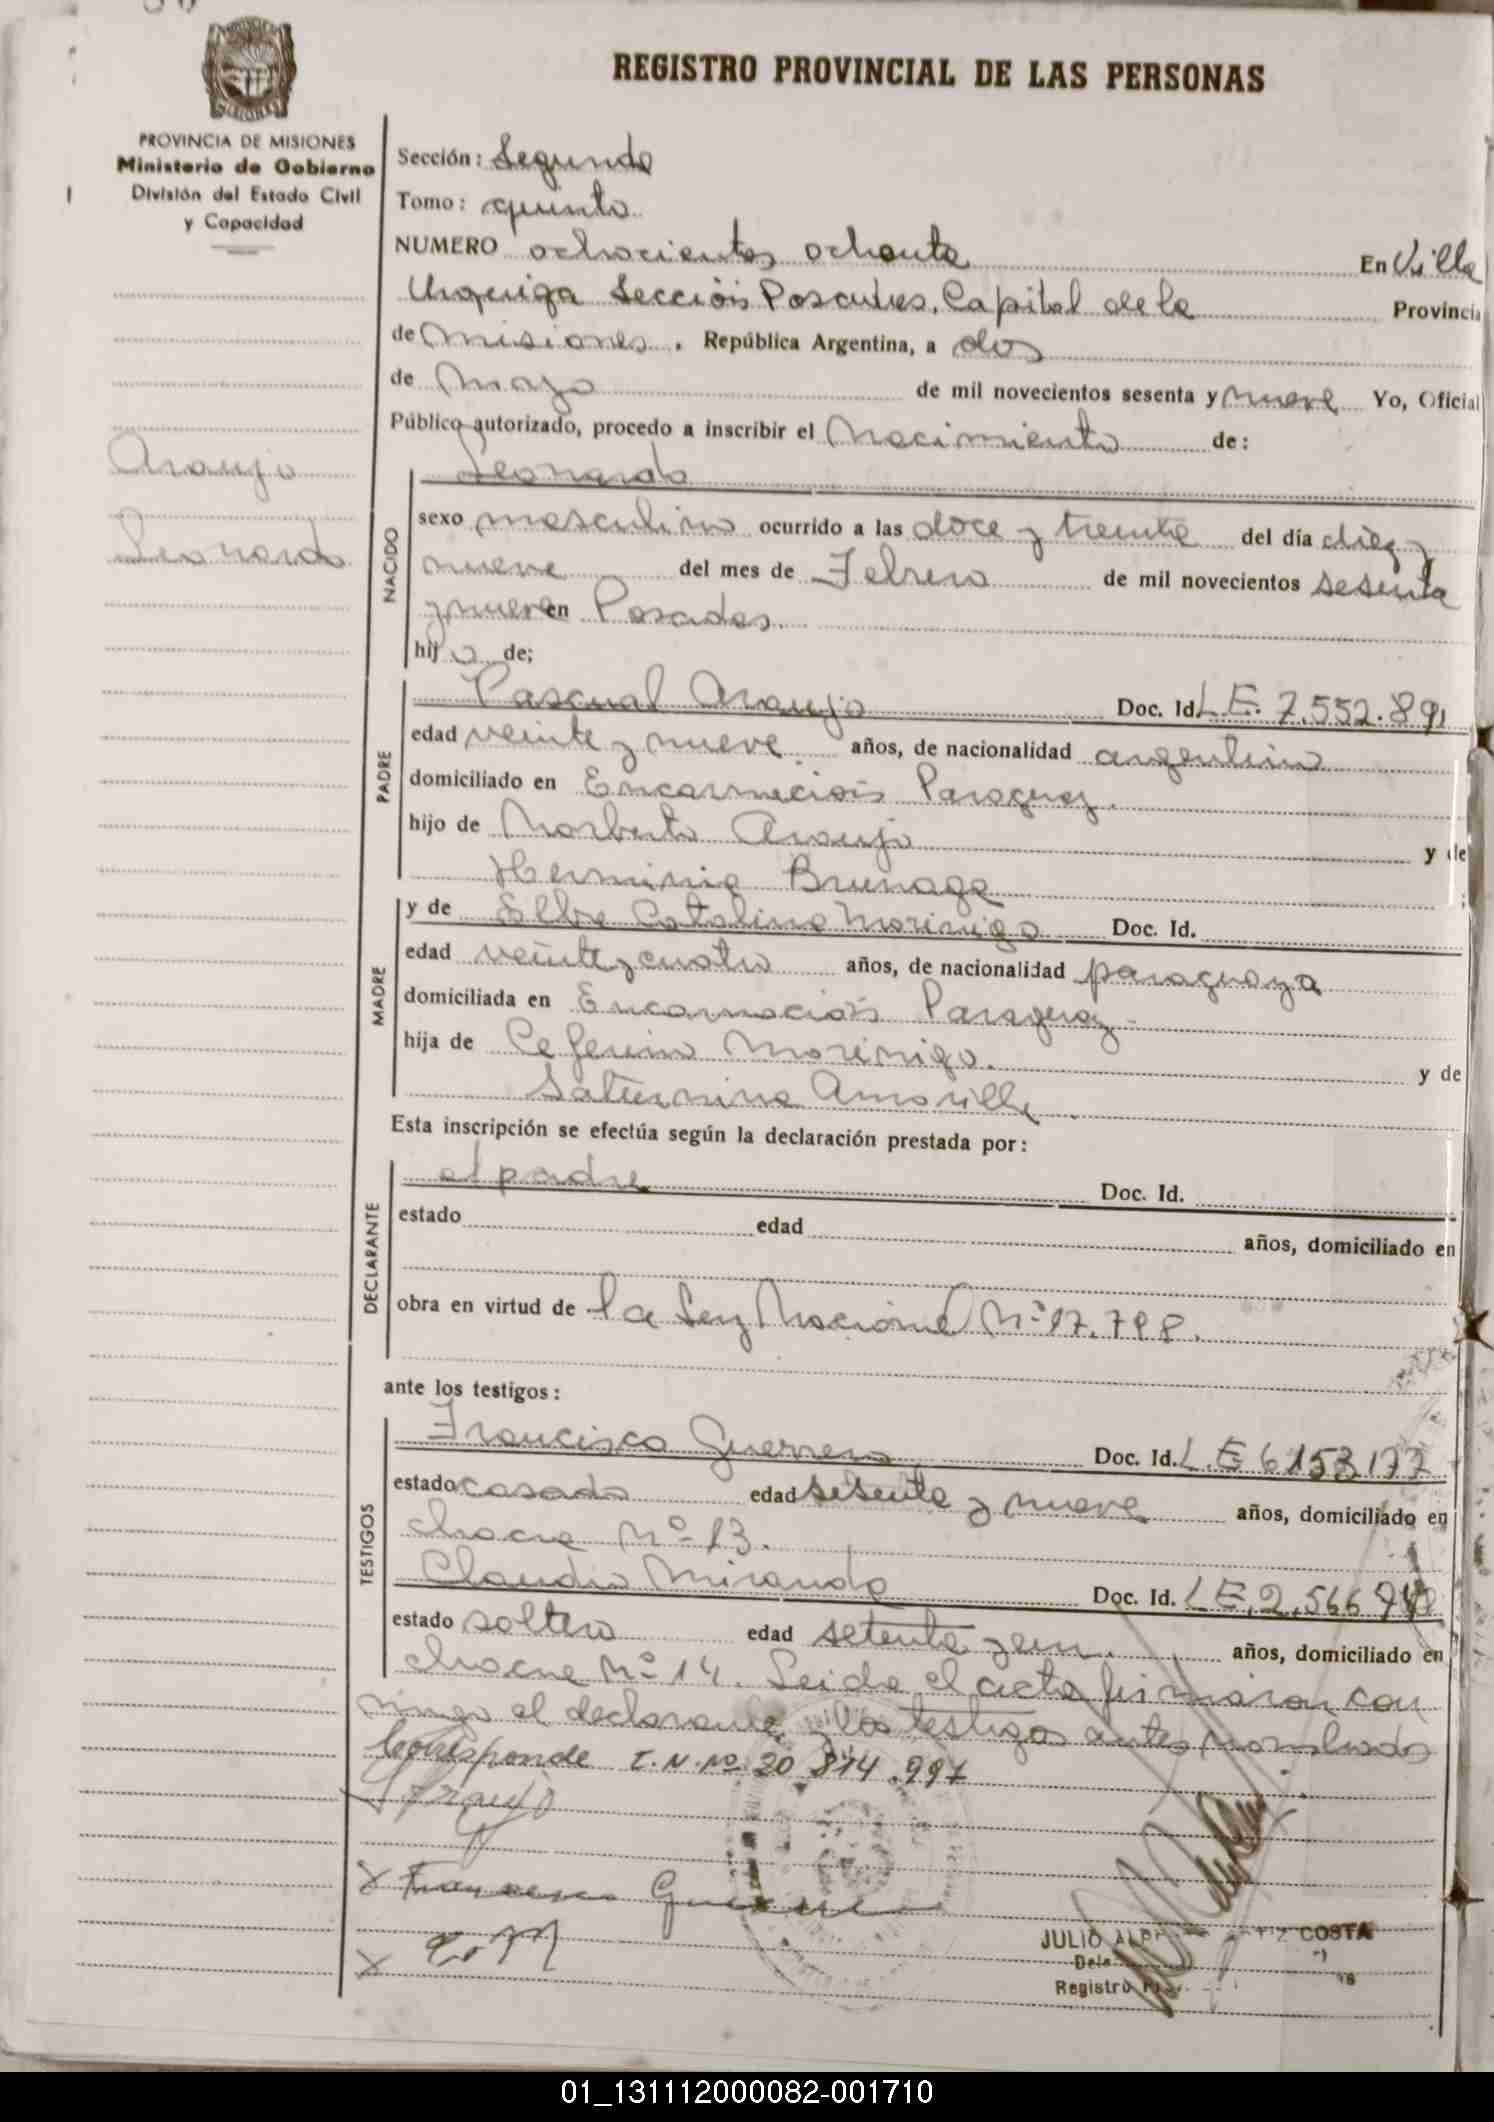 REGISTRO PROVINCIAL DE LAS PERSONAS
PROVINCIA DE MISIONES
Ministerio de Gobierno
División del Estado Civil
y Capacidad
Araujo
Leonardo
Sección: Segunda
Tomo: quinto
NUMERO ochocientos ochenta En Villa
Urquiza Sección Posadas, Capital de la Provincia
de Misiones. República Argentina, a dos
de Mayo de mil novecientos sesenta y nueve Yo, Oficial
Público autorizado, procedo a inscribir el Nacimiento de:
Leonardo
NACIDO
sexo masculino ocurrido a las doce y treinta del día diez y
nueve del mes de Febrero de mil novecientos sesenta
y nueve en Posadas.
hijo de;
PADRE
Pascual Araujo Doc. Id. L.E. 7.552.891
edad veinte y nueve años, de nacionalidad argentino
domiciliado en Encarnación Paraguay.
hijo de Norberto Araujo y de
Herminia Brunaga
MADRE
y de Elba Catalina Morinigo Doc. Id.
edad veinte y cuatro años, de nacionalidad paraguaya
domiciliada en Encarnación Paraguay
hija de Ceferino Morinigo. y de
Saturnina Amarilla
Esta inscripción se efectúa según la declaración prestada por:
DECLARANTE
el padre Doc. Id.
estado edad años, domiciliado en
obra en virtud de la Ley Nacional Nº 17.798.
ante los testigos:
TESTIGOS
Francisco Guerrero Doc. Id. L.E 6153177
estado casado edad sesenta y nueve años, domiciliado en
chacra Nº 13.
Claudio Miranda Doc. Id. L.E. 2.566
estado soltero edad setenta y un. años, domiciliado en
chacra Nº 14. Leida el acta firmaron con
migo el declarante y los testigos antes nombrados
Corresponde I.N.Nº 20 814.997
Araujo
X Francisco Guerrero
X C. M
JULIO COSTA
Registro
01_131112000082-001710